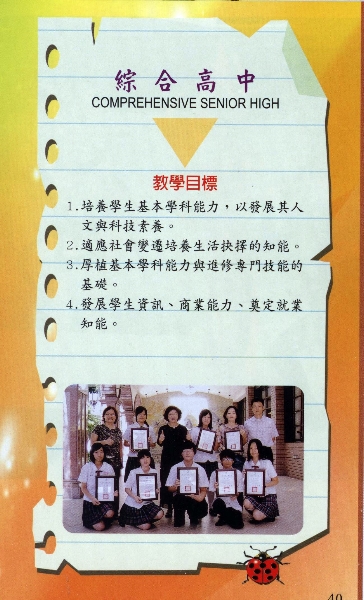 綜合高中
COMPREHENSIVE SENIOR HIGH
教學目標
1.培養學生基本學科能力，以發展其人
文與科技素養。
2.適應社會變遷培養生活抉擇的知能。
3.厚植基本學科能力與進修專門技能的
基礎。
4.發展學生資訊、商業能力、奠定就業
知能。
40